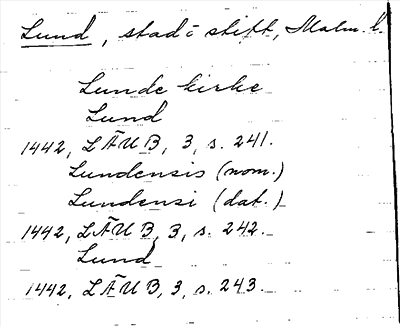 Lund, stad o stift, Malm. l.
Lunde kirke
Lund
1442, LÄUB, 3, s. 241.
Lundensis (nom.)
Lundensi (dat.)
1442, LÄUB, 3, s. 242.
Lund
1442, LÄUB, 3, s. 243.